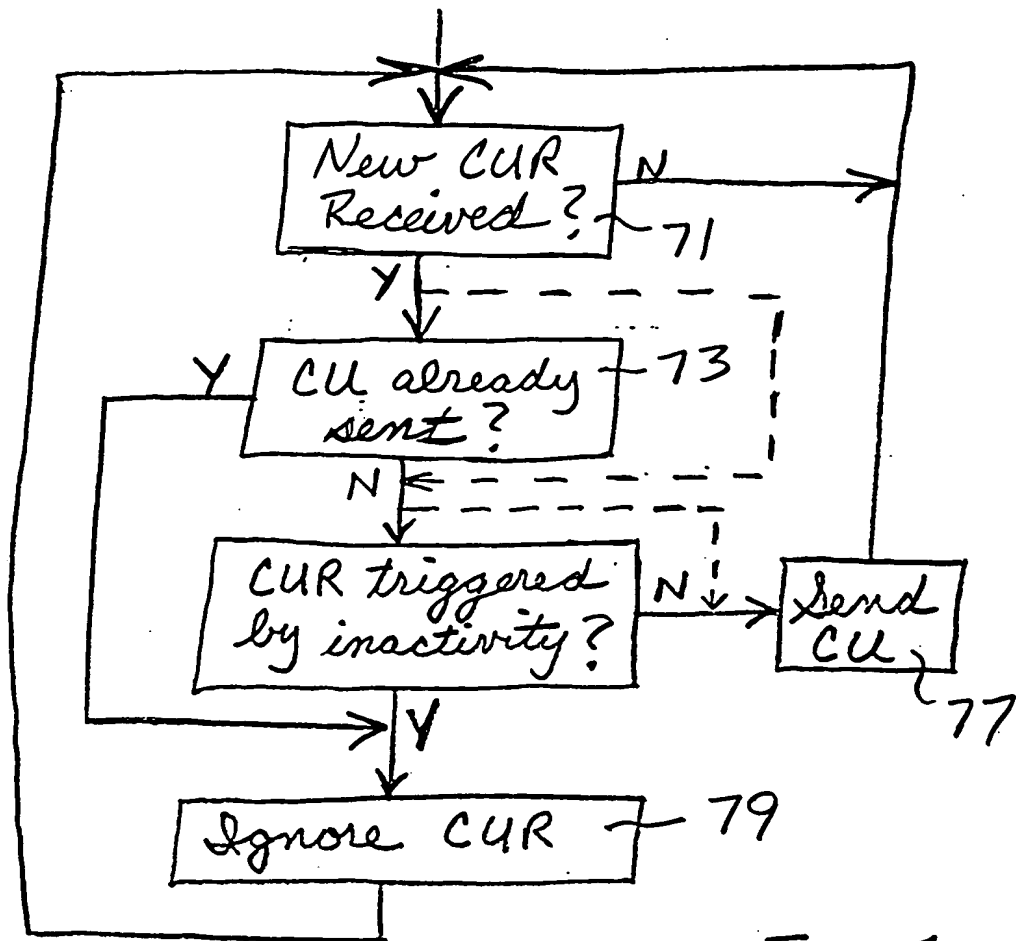 New CUR
Received?
N
71
Y
Y
CU already
sent?
73
N
CUR triggered
by inactivity?
N
Send
CU
77
Y
Ignore CUR
79